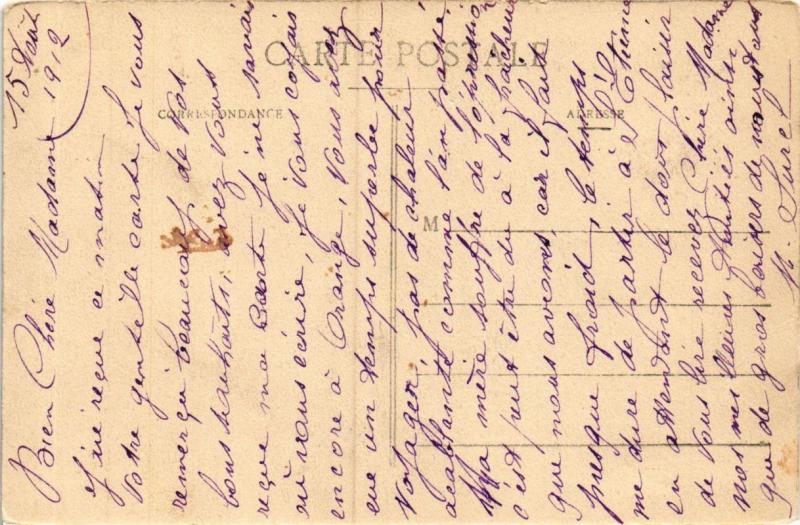 CARTE POSTALE
CORRESPONDANCE
ADRESSE
M
15 Août 1912
Bien Chère Madame
J'ai reçue ce matin
votre gentille carte je vous
remerçie beaucoup de vos
bons souhaits, avez vous
reçue ma carte je ne savais
où vous écrire, je vous croyais
encore à Orange, vous avez
eue un temps superbe pour
voyager, pas de chaleur
acablante comme l'an passé
Ma mère souffre de
c'est peut être du à la fraîcheur
que nous avions, car il fait
presque froid, le temps
me dure de partir à St Etienne
en attendant le doux plaisir
de vous lire recevez Chère Madame
nos meilleures amitiés ainsi
que de gros baisers de nous tous